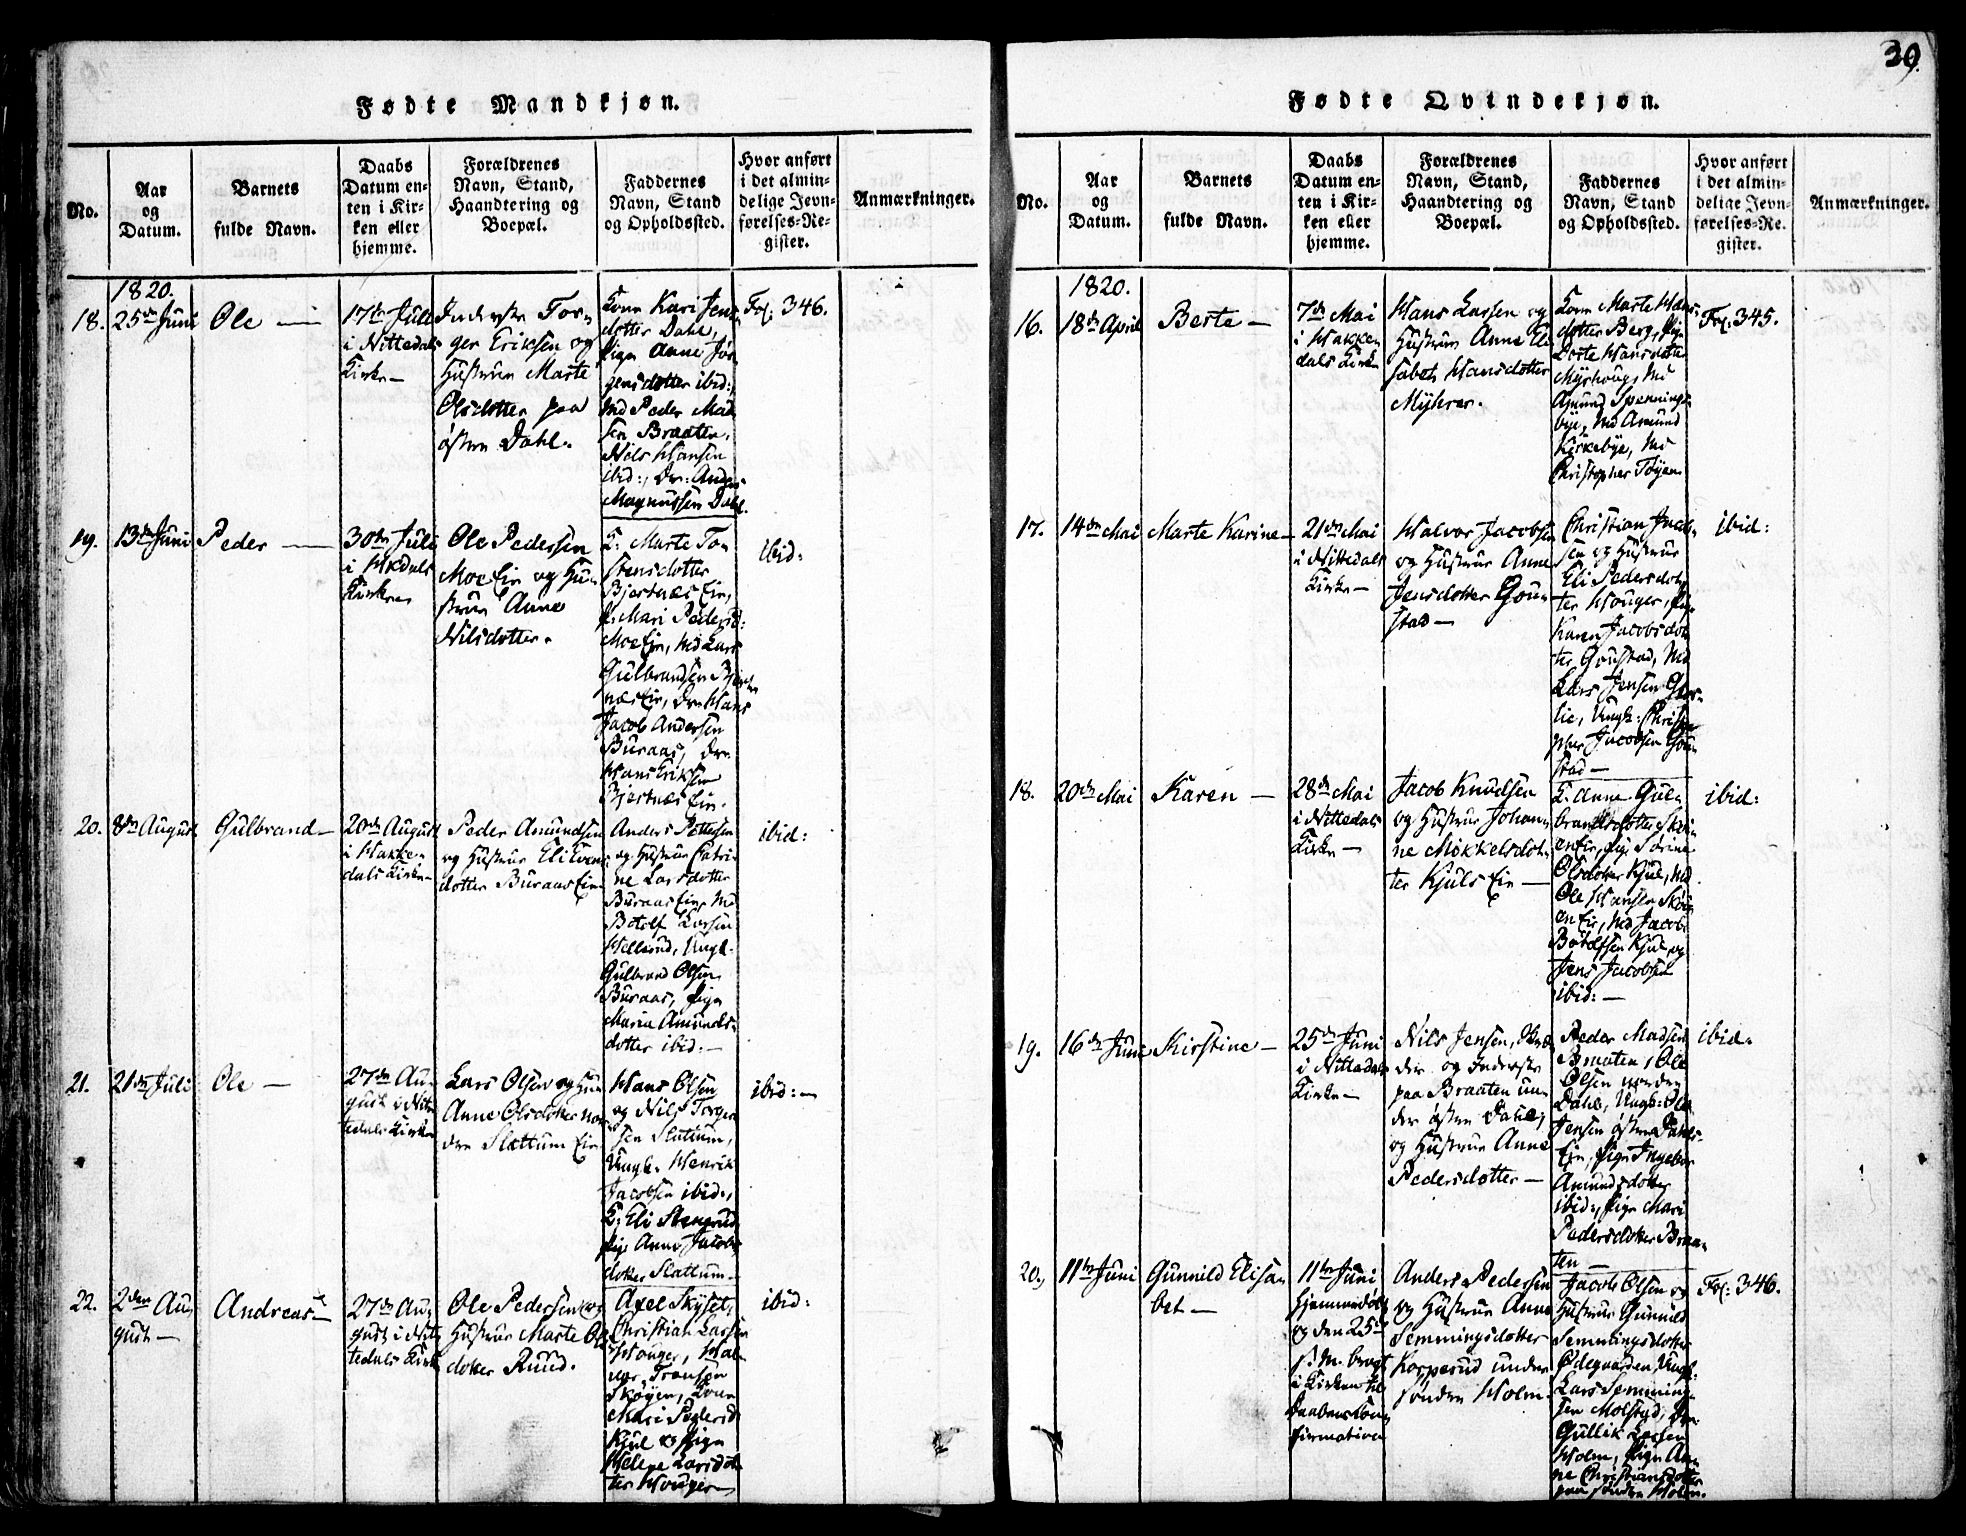 39.
Fødte Mandkjøn.
No.
Aar
og
Datum.
Barnets
fulde Navn.
Daabs
Datum en-
ten i Kir-
ken eller
hjemme.
Forældrenes
Navn, Stand,
Haandtering og
Boepæl.
Faddernes
Navn, Stand
og Opholdssted.
Hvor anført
i det almin-
delige Jevn-
førelses-Re-
gister.
Anmærkninger.
1820.
18.
25de Juni
Ole —
17de Juli
i Nittedals
Kirke —
Inderste Tor-
ger Eriksen og
Hustrue Marte
Olsdotter paa
østre Dahl.
Kone Kari Jens-
dotter Dahl,
Pige Anne Jør-
gensdotter ibid:,
Md Peder Mad-
sen Braaten,
Nels Hansen
ibid:, Dr: Anders
Magnussen Dahl.
Fol: 346.
19.
13de Juni
Peder —
30te Juli
i Hkdals
Kirke
Ole Pedersen
Moe Eie og Hu-
strue Anne
Nilsdotter.
K. Marte To-
stensdotter
Bjertnæs Eie,
P. Mari Pedersd:
Moe Eie, Md Lars
Gulbrandsen Bjert-
næs Eie, Dr: Hans
Jacob Andersen
Buraas, Dr:
Hans Eriksen
Bjertnæs Eie.
ibid:
20.
8de August
Gulbrand —
20de August
i Hakke-
dals Kirke —
Peder Amundsen
og Hustrue Eli Evens-
dotter Buraas Eie
Anders Pettersen
og Hustrue Catri-
ne Larsdotter
Buraas Eie, Md
Botolf Larsen
Hellerud, Ungk.
Gulbrand Olsen
Buraas, Pige
Maria Amunds-
dotter ibid: —
ibid:
21.
21de Juli
Ole —
27de Au-
gust i Nit-
tedals Kirke
Lars Olsen og Hu-
Anne Olsdotter nor-
dre Slattum Eie
Hans Olsen
og Nils Torger-
sen Slattum,
Ungk. Henrik
Jacobsen ibid:,
K. Eli Stengrud,
Pige Anne Jacobs-
dotter Slattum —
ibid: —
22.
2den Au-
gust —
Andreas —
27de Au-
gust i Nit-
tedals Kirke
Ole Pedersen og
Hustrue Marte Ols-
dotter Ruud.
Axel Skyset,
Christian Larsen
Houger, Hal-
vor Fransen
Skøyen, Kone
Mari Pedersd.
Kjul og Pige
Helene Larsdot-
ter Houger —
ibid:
Fødte Qvindekjøn.
No.
Aar
og
Datum.
Barnets
fulde Navn.
Daabs
Datum en-
ten i Kir-
ken eller
hjemme.
Forældrenes
Navn, Stand,
Haandtering og
Boepæl.
Faddernes
Navn, Stand
og Opholdssted.
Hvor anført
i det almin-
delige Jevn-
førelses-Re-
gister.
Anmærkninger.
1820.
16.
18de April
Berte —
7de Mai
i Hakke-
dals Kirke
Hans Larsen og
Hustrue Anne Eli-
sabet Hansdotter
Myhrer.
Kone Marte Hans-
dotter Berg, Pige
Dorte Hansdotter
Myrhoug, Md
Amund Spennings-
bye, Md Amund
Kirkebye, Md
Christopher Tøyen
Fol: 345.
17.
14de Mai
Marte Karine —
21de Mai
i Nittedals
Kirke —
Halvor Jacobsen
og Hustrue Anne
Jensdotter Gou-
stad —
Christian Jacob-
sen og Hustrue
Eli Pedersdot-
ter Houger, Pige
Karen Jacobsdot-
ter Goustad, Md
Lars Jensen
lie, Ungk: Christo-
pher Jacobsen Gou-
stad —
ibid:
18.
20de Mai
Karen —
28de Mai
i Nittedals
Kirke —
Jacob Knudsen
og Hustrue Johan-
ne Mikkelsdot-
ter Kjuls Eie —
K. Anne Gul-
brandsdotter Skøi-
en Eie, Pige Sørine
Olsdotter Kjul, Md
Ole Hansen Skøi-
en Eie, Md Jacob
Botolfsen Kjul og
Jens Jacobsen
ibid: —
ibid:
19.
16de Juni
Kirstine —
25de Juni
i Nittedals
Kirke —
Nils Jensen,
der og Inderste
paa Braaten un-
der østre Dahl,
og Hustrue Anne
Pedersdotter —
Peder Madsen
Braaten, Ole
Olsen nordre
Dahl, Ungk: Ole
Jensen østre Dahls
Eie, Pige Ingebor
Amundsdotter
ibid:, Pige Mari
Pedersdotter Braa-
ten —
ibid.
20.
11te Juni
Gunnild Elisa-
bet —
11te Juni
hjemmedøbt
og den 25de
s. M. bragt
i Kirken til
Daabens Con-
firmation
Anders Pedersen
og Hustrue Anne
Semmingsdotter
Korperud under
søndre Holm.
Jacob Olsen og
Hustrue Gunnild
Semmingsdotter
Ødegaarden, Ungk.
Lars Semming-
sen Molstad, Dr.
Gullik Larsen
Holm, Pige An-
ne Christiansdotter
paa søndre Holm.
Fol: 346.